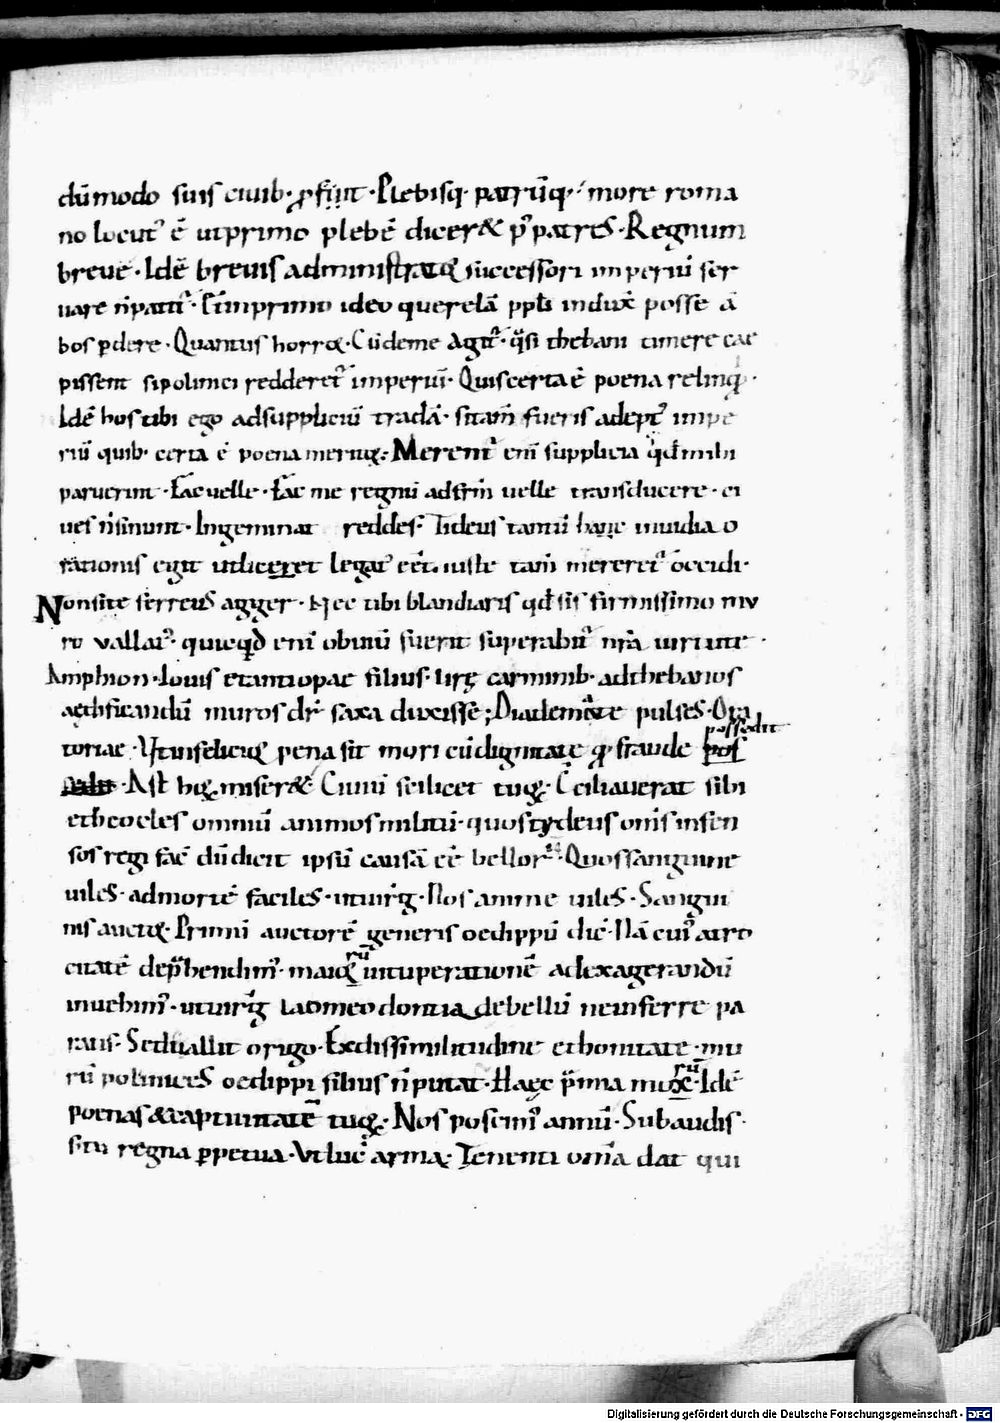 dūmodo suis ciuib· ꝓsint · Plebisq· patrūq·· more roma
no locut᷒ ē ut primo plebē dicer& p᷒ patres · Regnum
breue · Idē breuis administrat& successori imperiū ser
uare n̄ patit᷒ · imprimo ideo querelā ppl̄i induxit posse ā
bos ꝑdere · Quantus horror · Cū deme Agit᷒ · q̄si thebani timere cae
pissent si polinici redderet᷒ imperiū · Quis certa ē poena relinq̄ ·
Idē hos tibi ego ad suppliciū tradā · si tam̄ fueris adept᷒ impe
riū quib· certa ē poena meritę · Merent᷒ eni supplicia qd̄ mihi
paruerint · Fac uelle · Fac me regnū ad frm̄ uelle transducere · ci
ues n̄ sinunt · Ingeminat reddes · Tideus tantū hanc inuidia o
rationis egit ut liceret legat᷒ eēt iuste tam̄ mereret᷒ occidi ·
Non si te ferreus agger · Nec tibi blandiaris qd̄ sis firmissimo mu
ro uallat᷒ · quicqd̄ enī obuiū fuerit superabit᷒ nr̄a uirtute ·
Amphion · Iouis et antiopae filius · lirę carminib· ad thebanos
aedificandū muros dr̄ saxa duxisse ; Diademate pulses · Ora
toriae · Ut infelicitę pena sit mori cū dignitate q̄ fraude pos
possedit
sedit · Ast hęę miser& · Ciuiū scilicet tuę · Cciliauerat sibi
etheocles omniū animos militū · quos tydeus om̄s infen
sos regi fac̄ dū dicit ipsū causā eē bellor᷒ · Quos sanguine
uiles · ad mortē faciles · ut uirḡ · Nos anime uiles · Sangui
nis auctę · Primi auctorē generis oedippū dic̄ · Nā cui᷒ atro
citatē dep̄hendim᷒ · maiorū uituperationē ad exagerandū
inuehim᷒ · ut uirḡ Laomedontia de bellū ne inferre pa
ratis · Sed fallit origo · Ex dissimilitudine et bonitate · mu
rū polinices oedippi filius n̄ putat · Haec p̄ma murorū · Idē
poenas & captiuitatē tuę · Nos poscim᷒ annū · Subaudis ·
si tu regna ꝑpetua · Ut luc̄ arma · Tenenti om̄ia dat qui
Digitalisierung gefördert durch die Deutsche Forschungsgemeinschaft - DFG